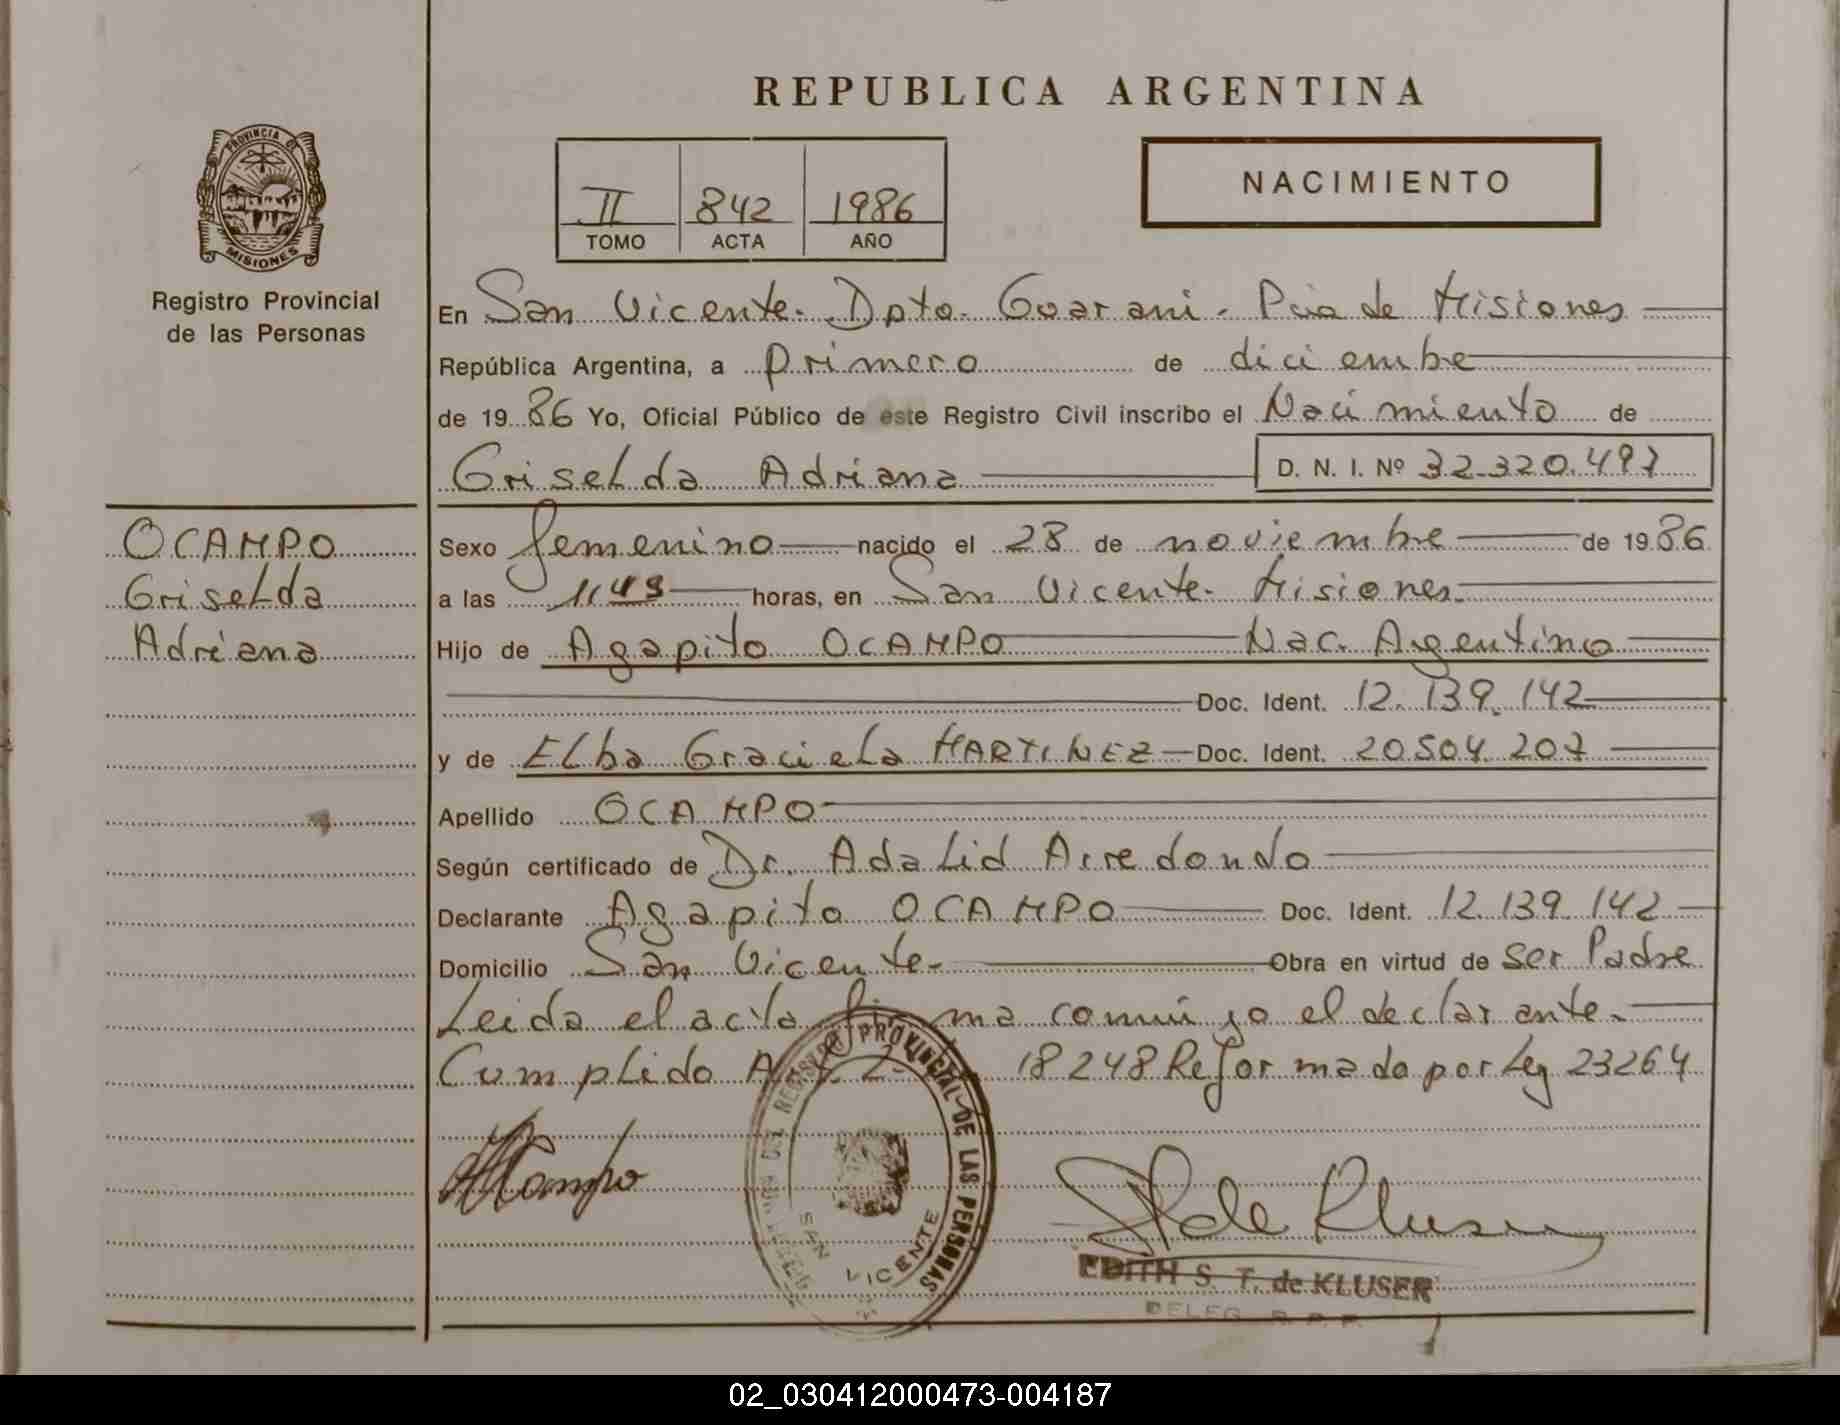 REPUBLICA ARGENTINA
PROVINCIA DE
MISIONES
Registro Provincial
de las Personas
II 842 1986
TOMO ACTA AÑO
NACIMIENTO
En San Vicente. Dpto. Guarani. Pcia de Misiones
República Argentina, a primero de diciembre
de 1986 Yo, Oficial Público de este Registro Civil inscribo el Nacimiento de
Griselda Adriana D. N. I. Nº 32.320.497
OCAMPO
Griselda
Adriana
Sexo femenino nacido el 28 de noviembre de 1986
a las horas, en San Vicente. Misiones.
Hijo de Agapito OCAMPO Nac. Argentino
Doc. Ident. 12.139.142
y de Elba Graciela MARTINEZ Doc. Ident. 20.504.207
Apellido OCAMPO
Según certificado de Dr. Adalid Arredondo
Declarante Agapito OCAMPO Doc. Ident. 12.139.142
Domicilio San Vicente. Obra en virtud de ser Padre
Leida el acta firma conmigo el declarante.
Cumplido 18248 Reformada por Ley 23264
REGISTRO PROVINCIAL DE LAS PERSONAS
SAN VICENTE
de Kluser
EDITH S. T. de KLUSER
DELEG. R. P. P.
02_030412000473-004187